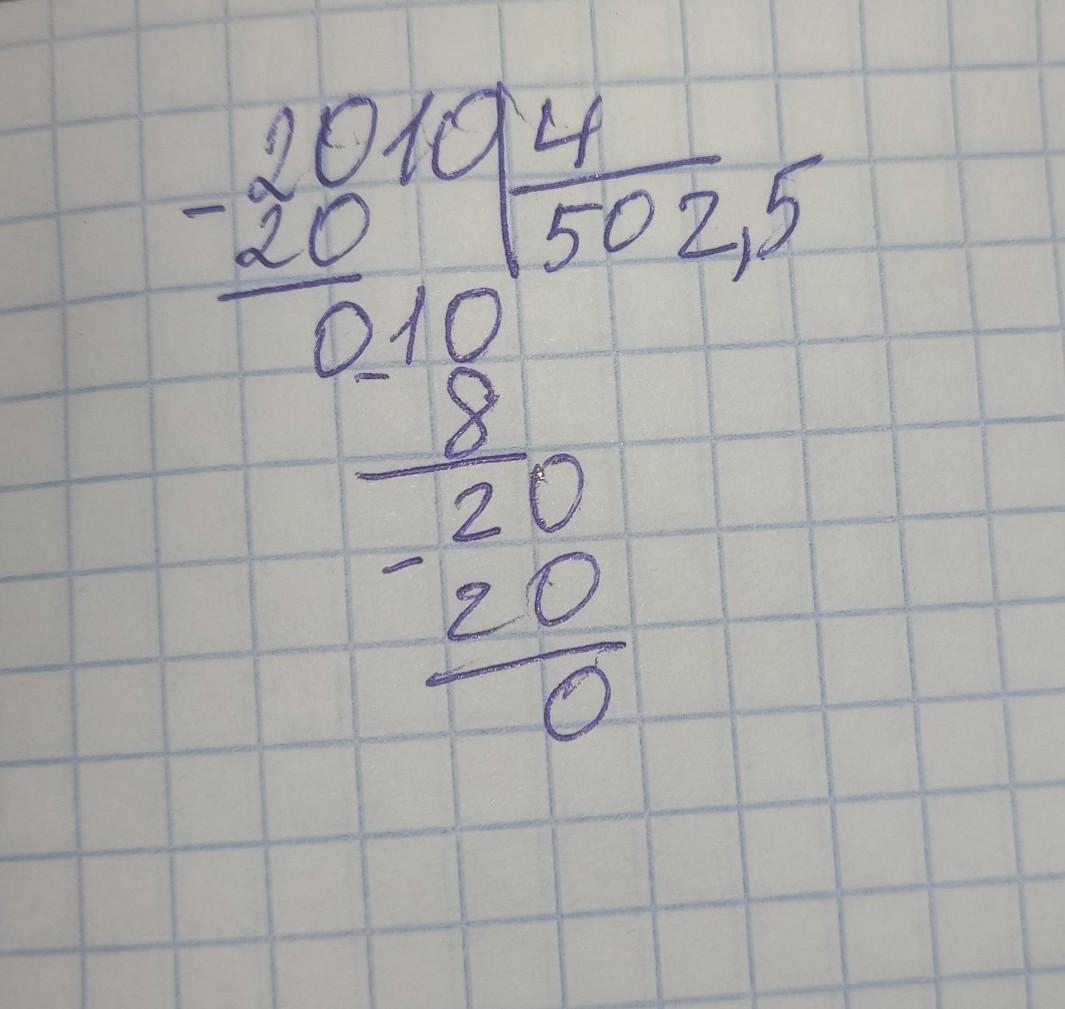 2010 4
- 20 502,5
010
- 8
20
- 20
0